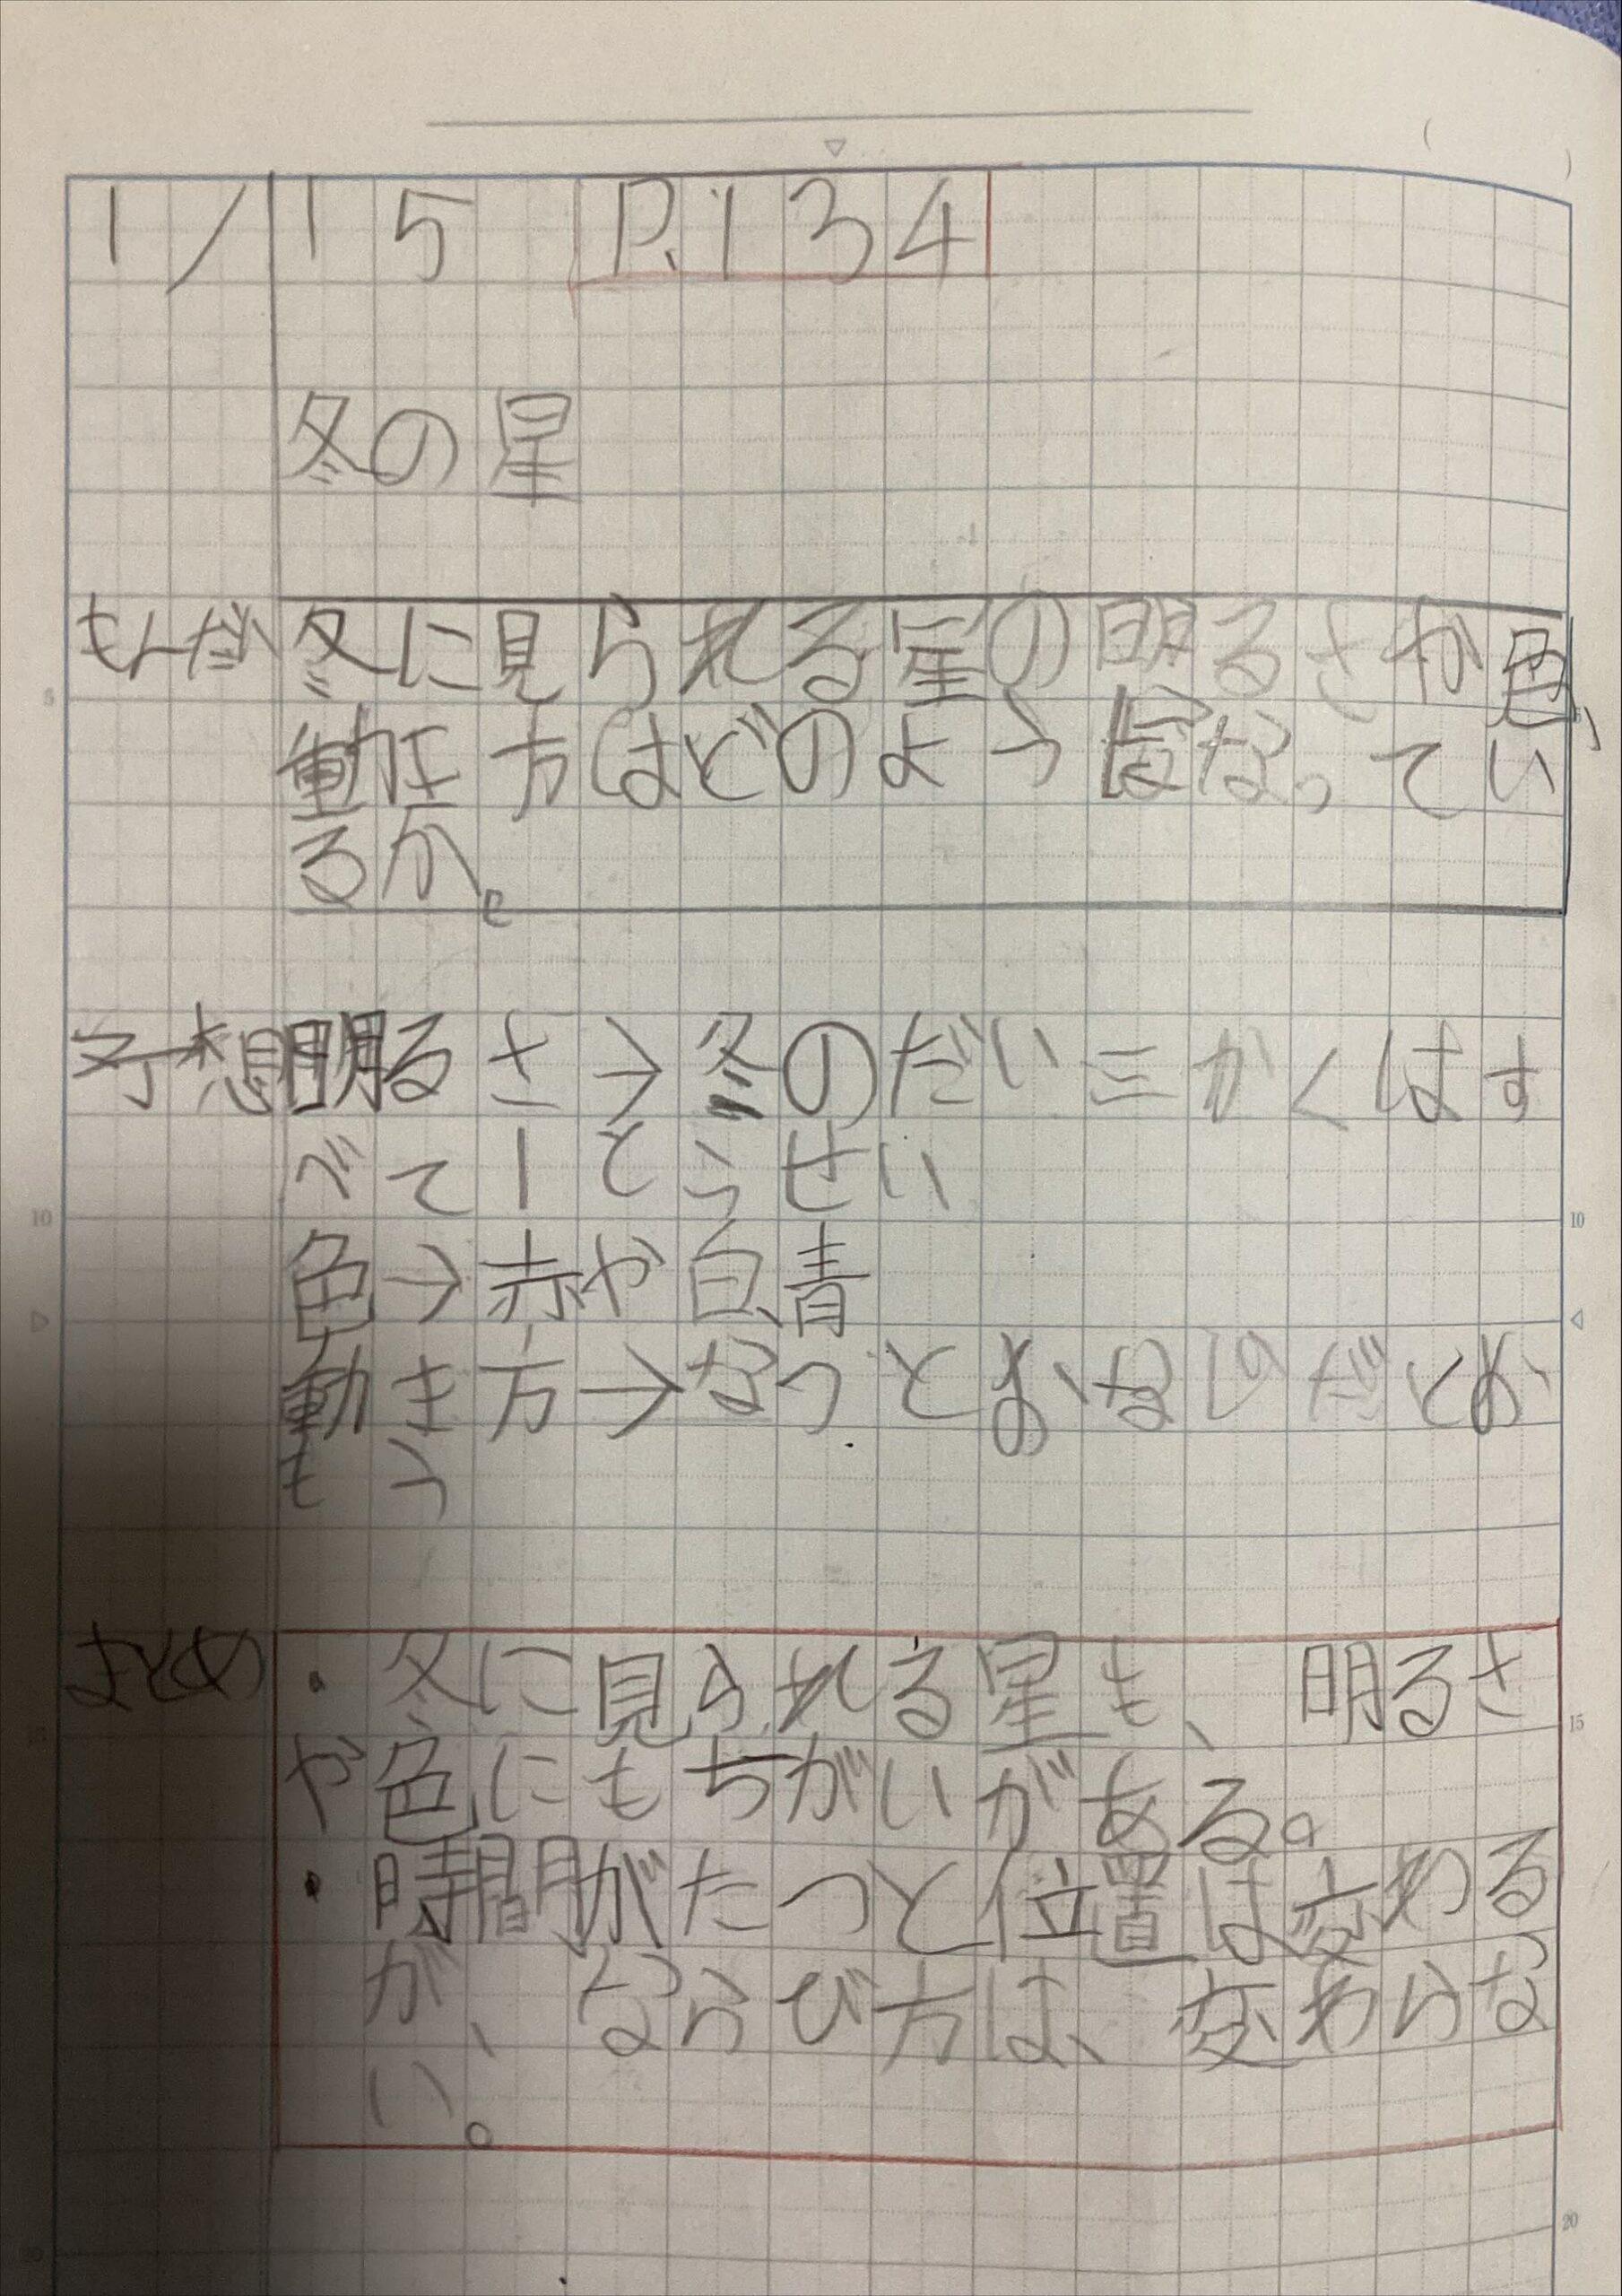 1/15 P.134
冬の星
もんだい 冬に見られる星の明るさか色、
動き方はどのようになってい
るか。
予想 明るさ→冬のだい三かくはす
べて一とうせい
色→赤や白、青
動き方→なつとおなじのだとお
もう
まとめ ・冬に見られる星も、明るさ
や色にもちがいがある。
・時間がたつと位置は変わる
が、ならび方は、変わらな
い。
5
10
10
15
15
20
20